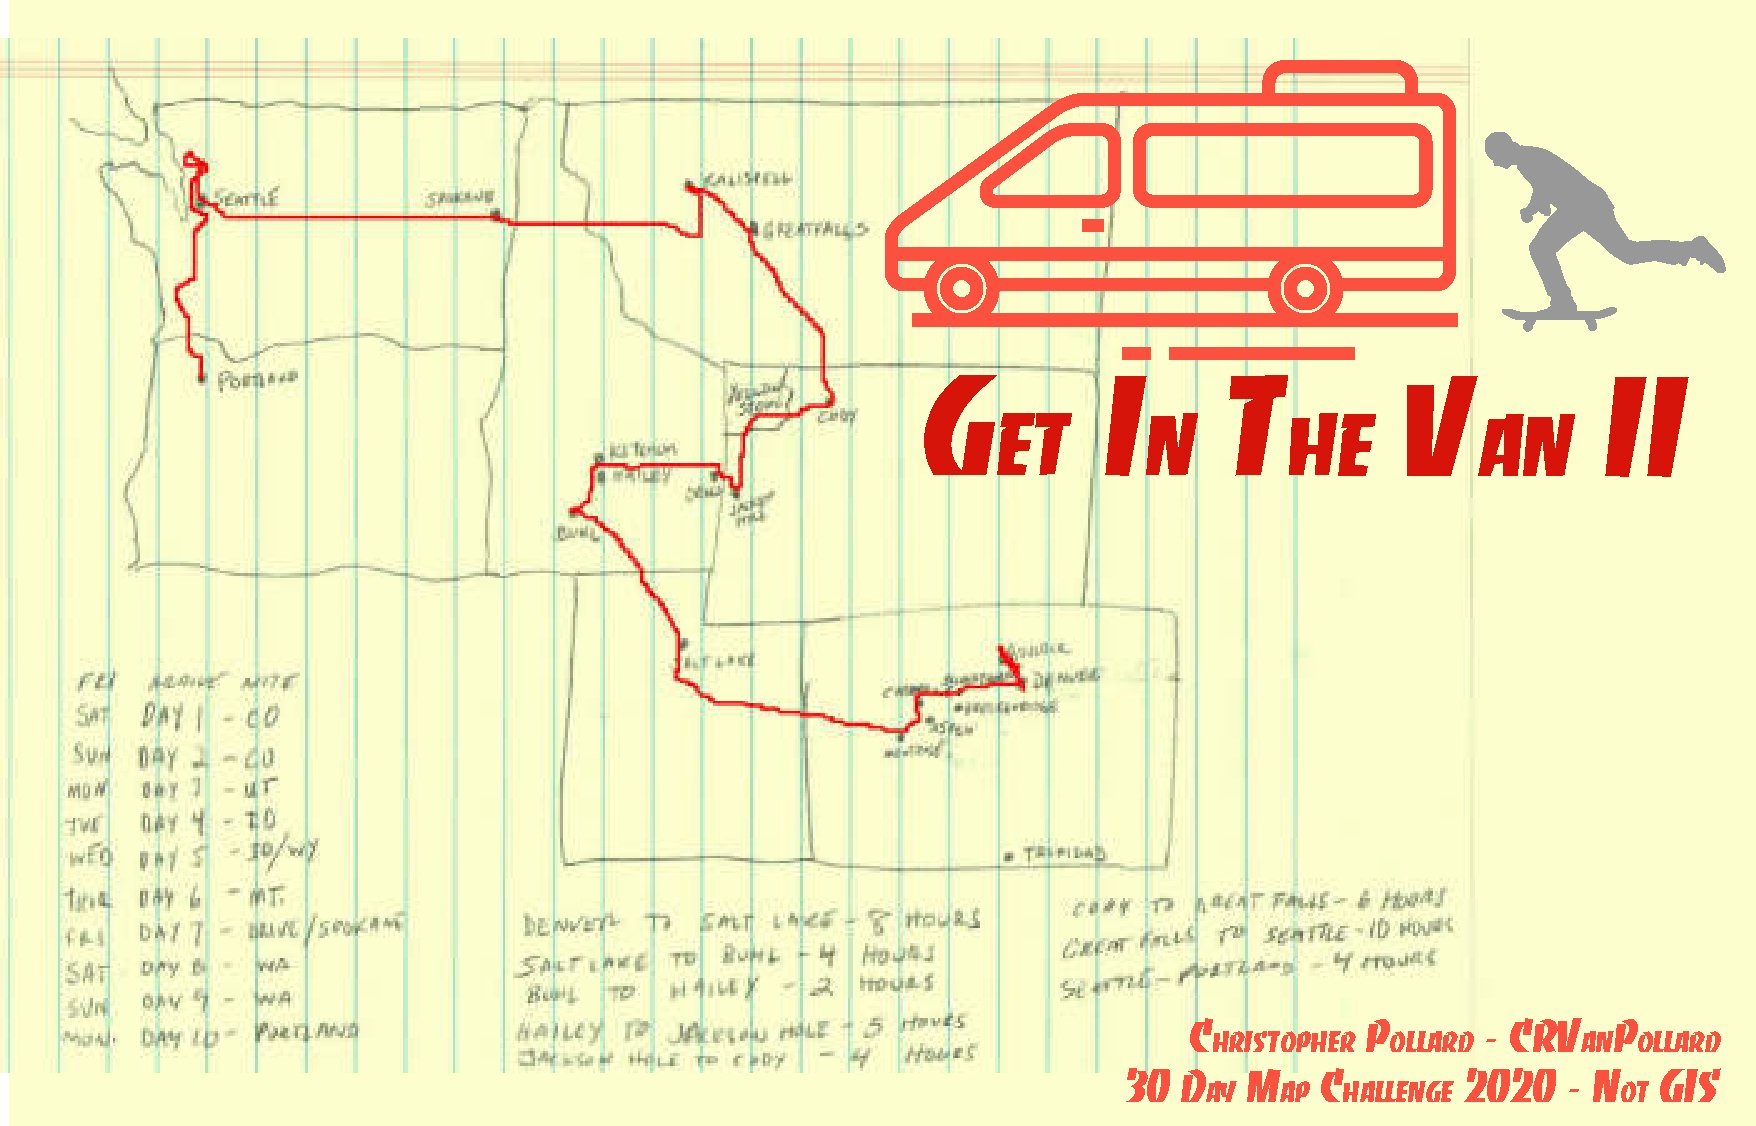 CALISPELL
SEATTLE
SPOKANE
GREATFALLS
PORTLAND
CODY
KETCHUM
HAILEY
JACKSON
HOLE
BUHL
SALT LAKE
BOULDER
DENVER
BRECKENRIDGE
ASPEN
TRINIDAD
GET IN THE VAN II
FRI ARRIVE NITE
SAT DAY 1 - CO
SUN DAY 2 - CO
MON DAY 3 - UT
TUE DAY 4 - ID
WED DAY 5 - ID/WY
THUR DAY 6 - MT.
FRI DAY 7 - DRIVE/SPOKANE
SAT DAY 8 - WA
SUN DAY 9 - WA
MON. DAY 10 - PORTLAND
DENVER TO SALT LAKE - 8 HOURS
SALT LAKE TO BUHL - 4 HOURS
BUHL TO HAILEY - 2 HOURS
HAILEY TO JACKSON HOLE - 5 HOURS
JACKSON HOLE TO CODY - 4 HOURS
CODY TO GREAT FALLS - 6 HOURS
GREAT FALLS TO SEATTLE - 10 HOURS
SEATTLE - PORTLAND - 4 HOURS
CHRISTOPHER POLLARD - CRVANPOLLARD
30 DAY MAP CHALLENGE 2020 - NOT GIS